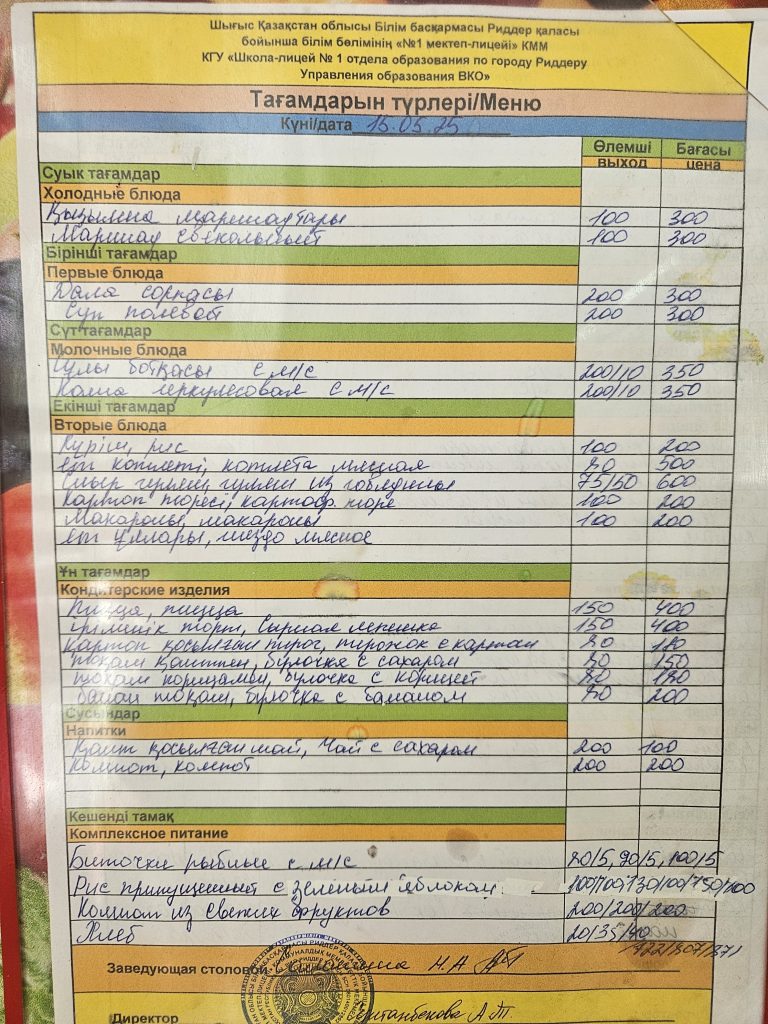 Шығыс Қазақстан облысы Білім басқармасы Риддер қаласы
бойынша білім бөлімінің «№1 мектеп-лицейі» КММ
КГУ «Школа-лицей № 1 отдела образования по городу Риддеру
Управления образования ВКО»
Тағамдарын түрлері/Меню
Күні/дата 15.05.25
Өлемші Бағасы
выход цена
Суык тағамдар
Холодные блюда
Қызылша маринадтары 100 300
Маринад свекольный 100 300
Бірінші тағамдар
Первые блюда
Дала сорпасы 200 300
Суп полевой 200 300
Сүт тағамдар
Молочные блюда
Сұлы ботқасы с м/с 200/10 350
Каша геркулесовая с м/с 200/10 350
Екінші тағамдар
Вторые блюда
Күріш, рис 100 200
Ет котлеті, котлета мясная 80 500
Сиыр гуляш, гуляш из говядины 75/50 600
Картоп пюресі, картоф. пюре 100 200
Макароны, макароны 100 200
Ет ұялары, гнездо мясное
Ұн тағамдар
Кондитерские изделия
Пицца, пицца 150 400
150 400
Картоп қосылған пирог, пирожок с картоп 80 180
тоқаш қантпен, булочка с сахаром 80 150
тоқаш корицамен, булочка с корицей 80 180
банан тоқаш, булочка с бананом 80 200
Сусындар
Напитки
Қант қосылған шай, Чай с сахаром 200 100
Компот, компот 200 200
Кешенді тамақ
Комплексное питание
Биточки рыбные с м/с 80/5, 90/5, 100/5
Рис припущенный с зеленым яблоком 100/100/130/100/150/100
Компот из свежих фруктов 200/200/200
Хлеб 20/35/40
Заведующая столовой Н.А
Директор А.Т.